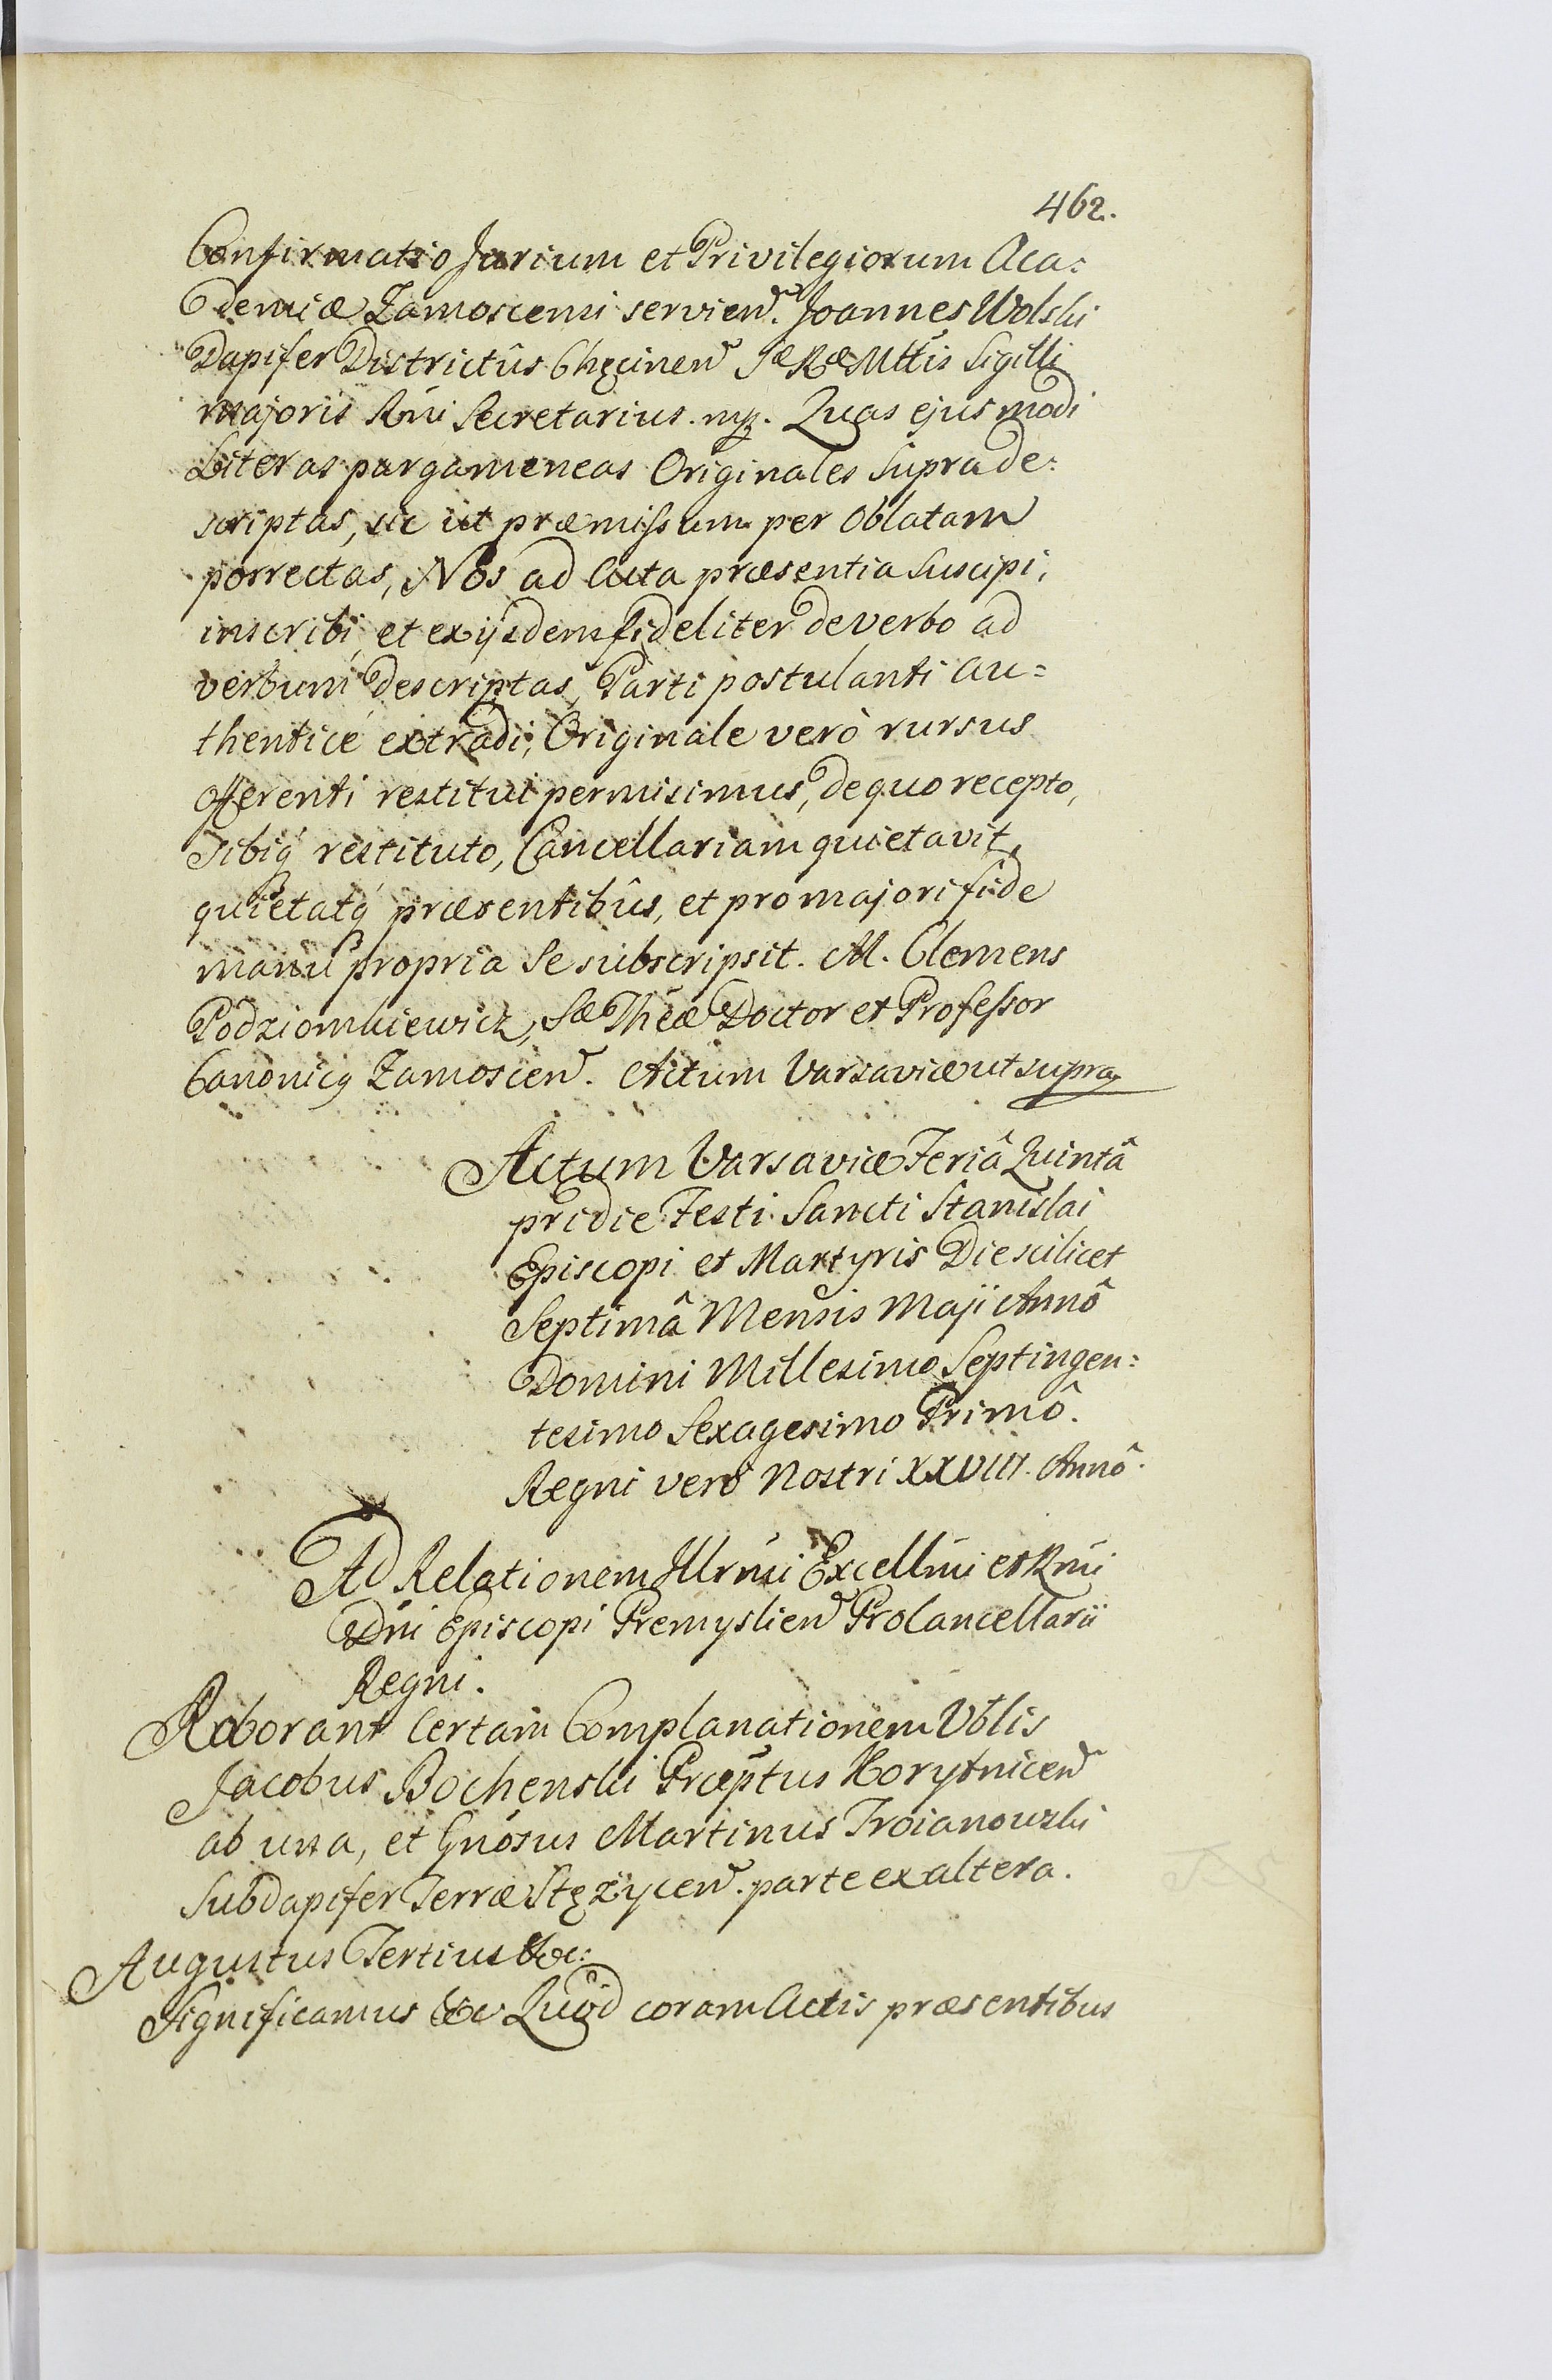 462.
Confirmatio Jurium et Privilegiorum Aca:
demiæ Zamoscensi servien. Joannes Wolski
Dapifer Districtûs Chęcinen Sæ Ræ Mttis Sigilli
majoris Rni Secretarius. mp. Quas ejusmodi
Literas pargameneas Originales Suprade:
scriptas, sic ut præmissum per Oblatam
porrectas, Nos ad Acta præsentia Suscipi,
inscribi, et ex ijsdem fideliter de verbo ad
verbum descriptas, Parti postulanti au=
thenticè extradi, Originale verò rursus
offerenti restitui permisimus, de quo recepto,
sibiq́ restituto, Cancellariam quietavit,
quietatq́ præsentibûs, et pro majori fide
manu propria Se subscripsit. M. Clemens
Podziomkiewicz, Sæ Theæ Doctor et Professor
Canonicq Zamoscen. Actum Varsaviæ ut supra
Actum Varsaviæ Feriâ Quintâ
pridie Festi Sancti Stanislai
Episcopi et Martyris Die scilicet
Septimâ Mensis Maji Annô
Domini Millesimo Septingen:
tesimo Sexagesimo Primô.
Regni verò Nostri XXVIII. Annô.
Ad Relationem Illrmi Excellmi et Rmi
Dni Episcopi Premyslien Procancellarii
Regni.
Roborant Certam Complanationem Vblis
Jacobus Bochenski Præptus Korytnicen
ab una, et Gnosus Martinus Troianowski
Subdapifer Terræ Stężycen. parte ex altera.
Augustus Tertius &c:
Significamus &c Quòd coram Actis præsentibus